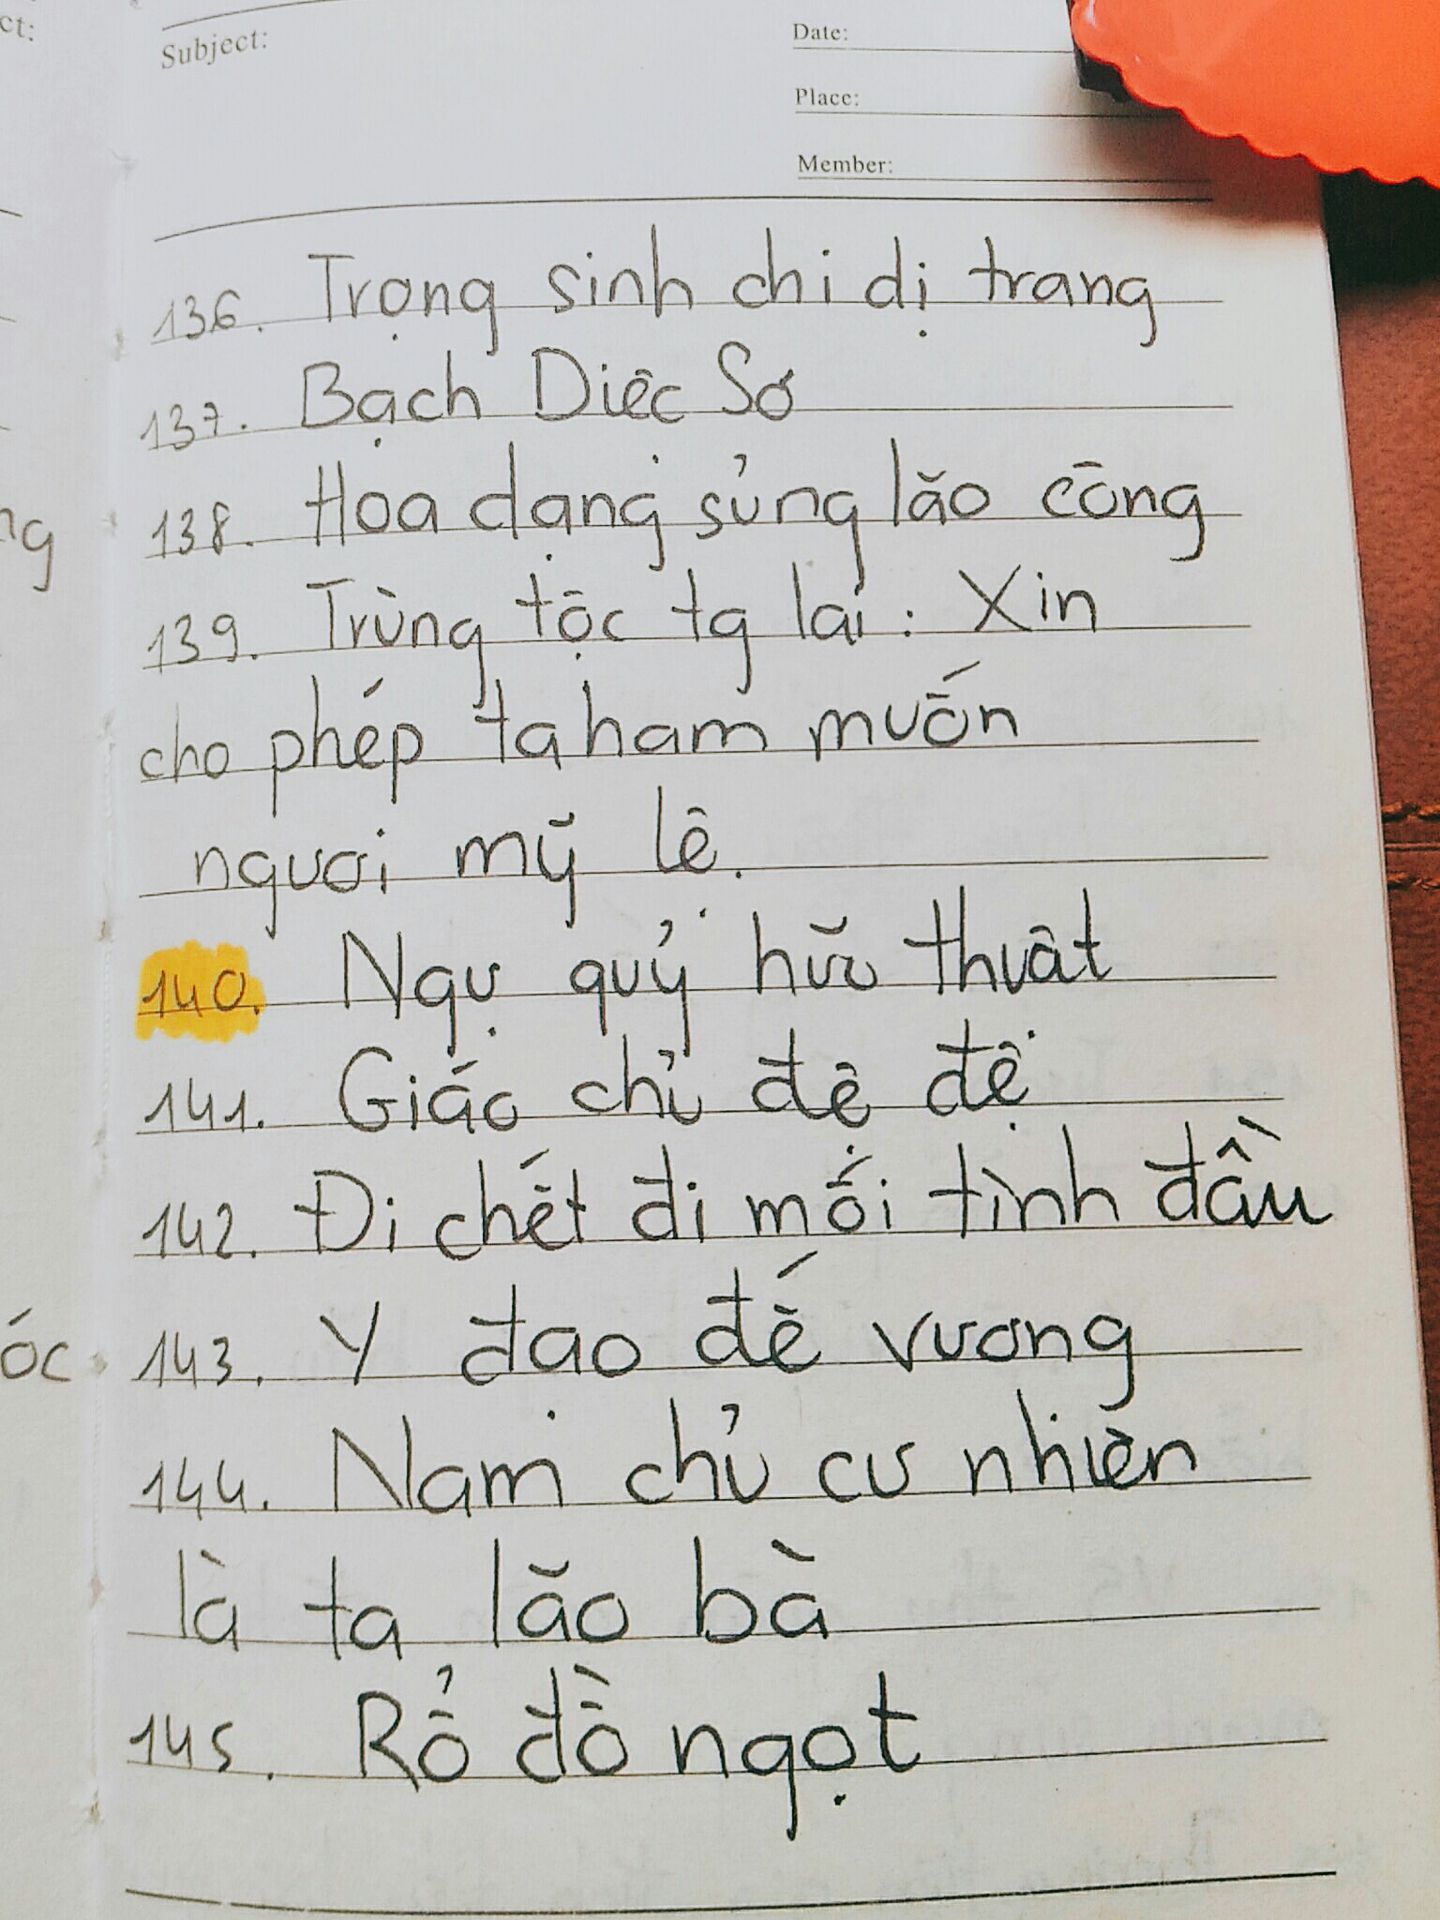 ct:
Subject:
Date:
Place:
Member:
136. Trọng sinh chi dị trang
137. Bạch Diêc Sơ
ng
138. Hoa dạng sủng lão công
139. Trùng tộc tg lai : Xin
cho phép ta ham muốn
ngươi mỹ lệ.
140. Ngự quỷ hữu thuật
141. Giáo chủ đệ đệ
142. Đi chết đi mối tình đầu
óc
143. Y đạo đế vương
144. Nam chủ cư nhiên
là ta lão bà
145. Rổ đồ ngọt